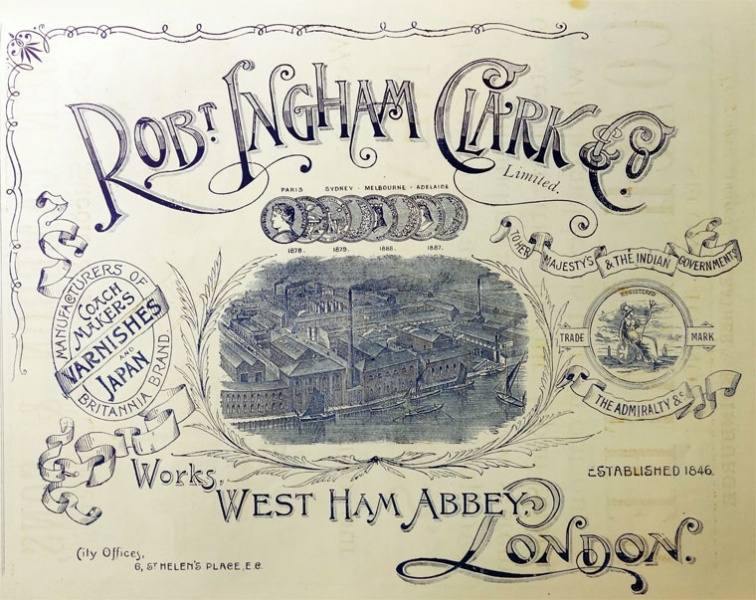 ROBT INGHAM CLARK & CO
Limited.
PARIS SYDNEY - MELBOURNE - ADELAIDE
1878. 1879. 1888. 1887.
TO HER MAJESTY'S & THE INDIAN GOVERNMENTS
MANUFACTURERS OF
COACH
MAKERS
VARNISHES
AND
JAPAN
BRITANNIA BRAND
REGISTERED
TRADE MARK
THE ADMIRALTY &c
Works,
WEST HAM ABBEY,
ESTABLISHED 1846.
LONDON.
City Offices,
6, ST HELEN'S PLACE, E.C.